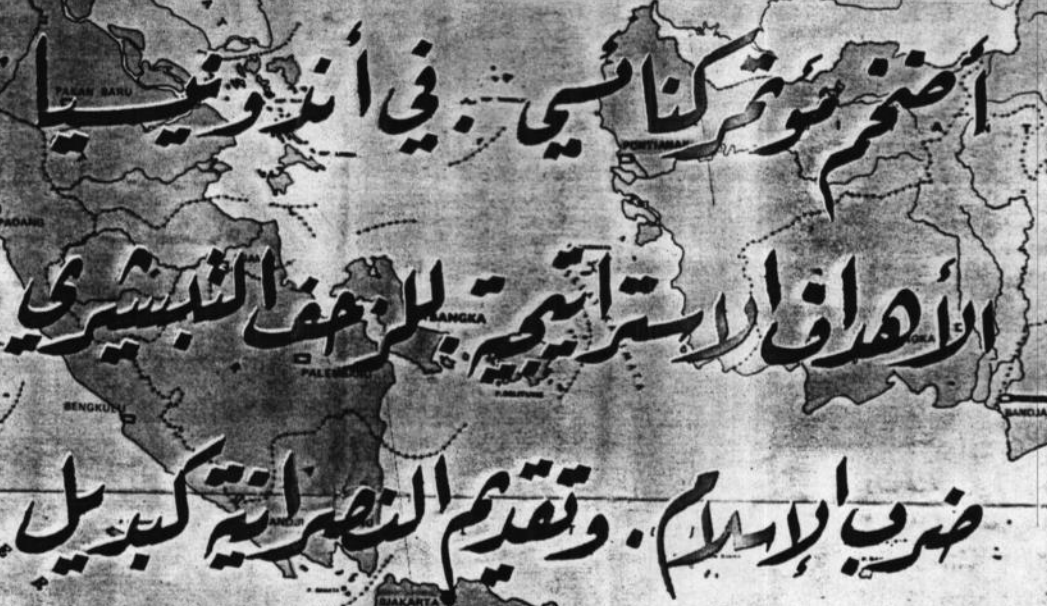 أضخم مؤتمر كنائسي . في أندونيسيا
الأهداف الاستراتيجية للزحف التبشيري
ضرب الإسلام . وتقديم النصرانية كبديل
PAKAN BARU
PONTIANAK
PADANG
BANGKA
BENGKULU
DJAKARTA